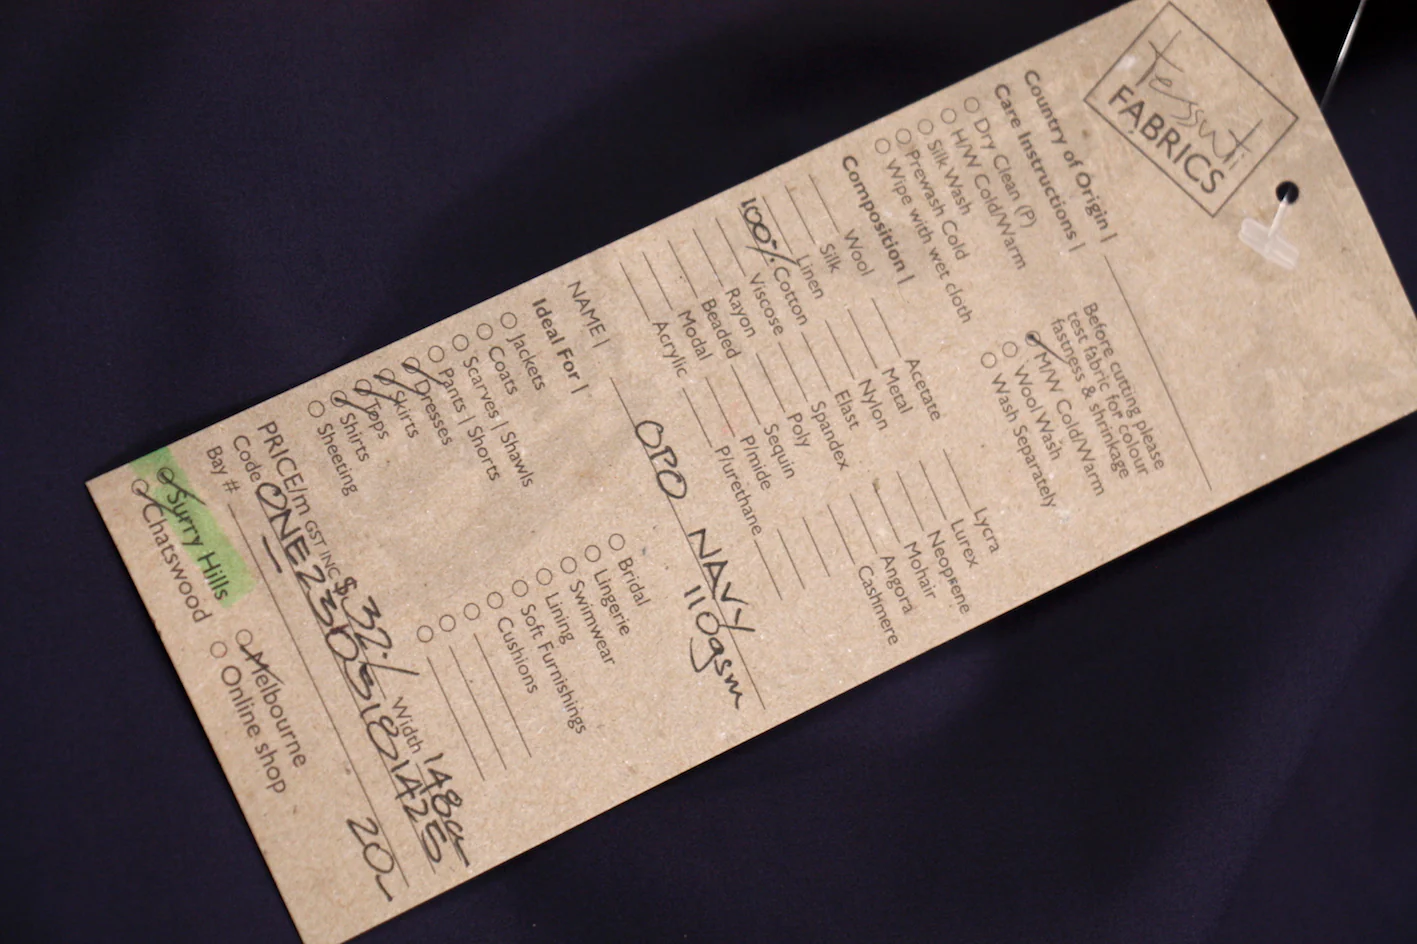 tessuti
FABRICS
Country of Origin |
Care Instructions |
Dry Clean (P)
H/W Cold/Warm
Silk Wash
Prewash Cold
Wipe with wet cloth
Before cutting please
test fabric for colour
fastness & shrinkage
M/W Cold/Warm
Wool Wash
Wash Separately
Composition |
Wool
Silk
Linen
100% Cotton
Viscose
Rayon
Beaded
Modal
Acrylic
Acetate
Metal
Nylon
Elast
Spandex
Poly
Sequin
P/mide
P/urethane
Lycra
Lurex
Neoprene
Mohair
Angora
Cashmere
NAME | OPO NAVY
110gsm
Ideal For |
Jackets
Coats
Scarves | Shawls
Pants | Shorts
Dresses
Skirts
Tops
Shirts
Sheeting
Bridal
Lingerie
Swimwear
Lining
Soft Furnishings
Cushions
PRICE/m GST INC $32 Width 148cm
Code
Bay # 20
Surry Hills
Chatswood
Melbourne
Online shop